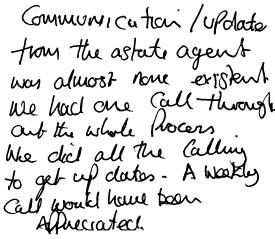 Communication / update
from the astate agent
was almost none existent
We had one call through
out the whole process.
We did all the calling
to get up dates - A weekly
call would have been
Appreciated.